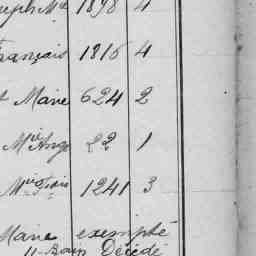 eph Mie 1898 4
rançois 1816 4
t Marie 624 2
Mie Ange 22 1
Mie Frs 1241 3
Marie exempté
Décédé